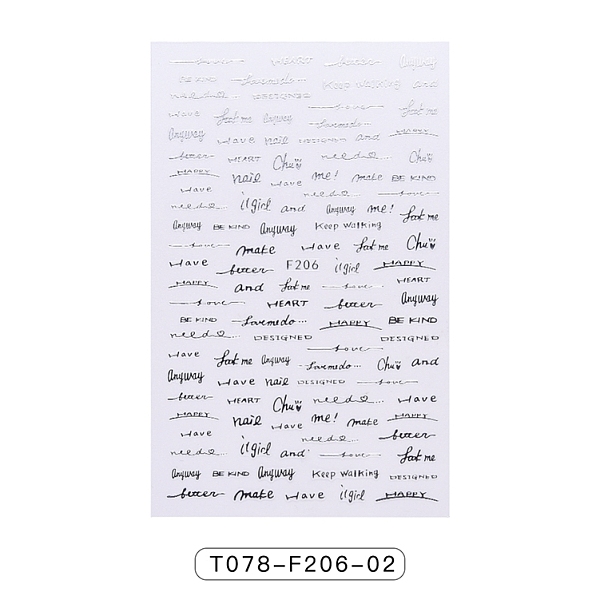 love HEART better Anyway
BE KIND Lovemedo... Keep walking and
need DESIGNED
love
have look me Anyway look me
Lovemedo...
Anyway have nail DESIGNED and HAPPY
better HEART Chu need Chu
HAPPY nail have me! make BE KIND
have need love
need it girl and Anyway me! look me
Anyway BE KIND Anyway Keep walking
love make have look me Chu
have better F206 it girl HAPPY
HAPPY and look me love have
love HEART better Anyway
BE KIND Lovemedo... HAPPY BE KIND
need DESIGNED DESIGNED
love
have look me Anyway Lovemedo... Chu and
Anyway have nail DESIGNED love
better HEART Chu need have
HAPPY nail have me! make HAPPY
have need better
need it girl and love look me
Anyway BE KIND Anyway Keep walking DESIGNED
better make have it girl HAPPY
T078-F206-02